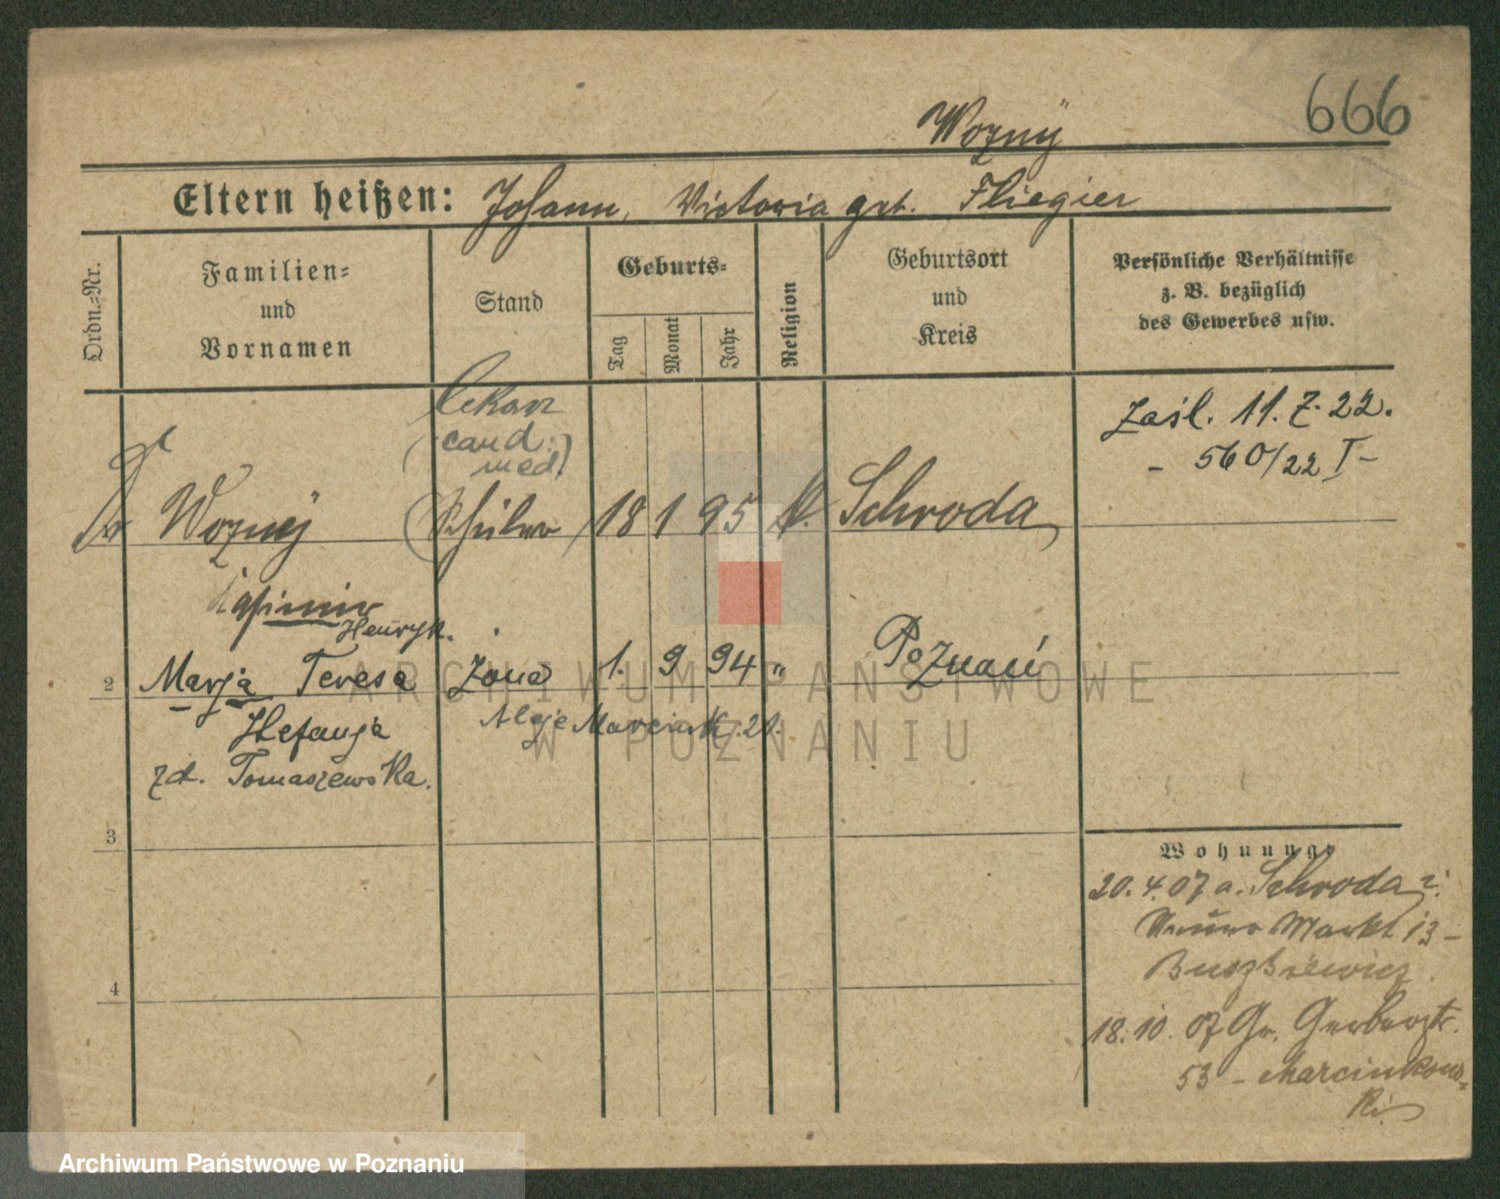 666
Wozny
Eltern heißen: Johann, Victoria geb. Fliegier
Ordn.=Nr.
Familien=
und
Vornamen
Stand
Geburts=
Tag
Monat
Jahr
Religion
Geburtsort
und
Kreis
Persönliche Verhältnisse
z. B. bezüglich
des Gewerbes usw.
lekarz
(cand.
med.)
zaśl. 11. 7. 22.
- 560/22 I -
Dr Wozny (Schüler) 18 1 95 k. Schroda
Kasimir
Henryk.
2 Marja Teresa żona 1. 9 94 " Poznań
Stefanja Aleje Marcink. 21.
zd. Tomaszewska.
3
4
Wohnung
20. 4. 07 a. Schroda i.
Neuer Markt 13 -
Buszkiewicz.
18. 10. 07 Gr. Gerberstr.
53 - Marcinkows=
ki
ARCHIWUM PAŃSTWOWE
W POZNANIU
Archiwum Państwowe w Poznaniu